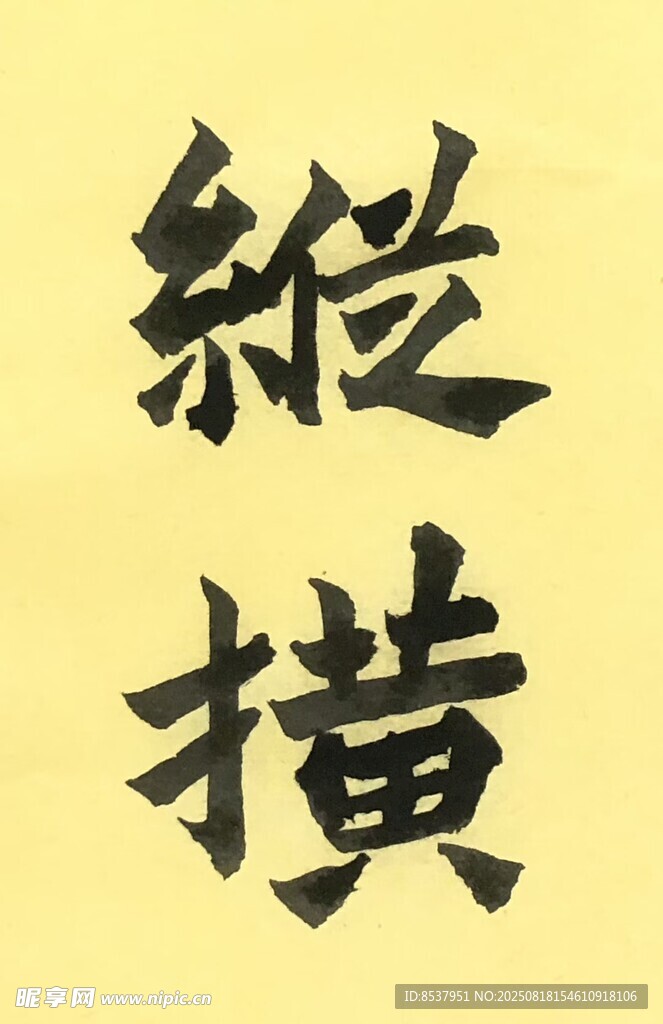 縱
撗
昵享网 www.nipic.cn
ID:8537951 NO:20250818154610918106